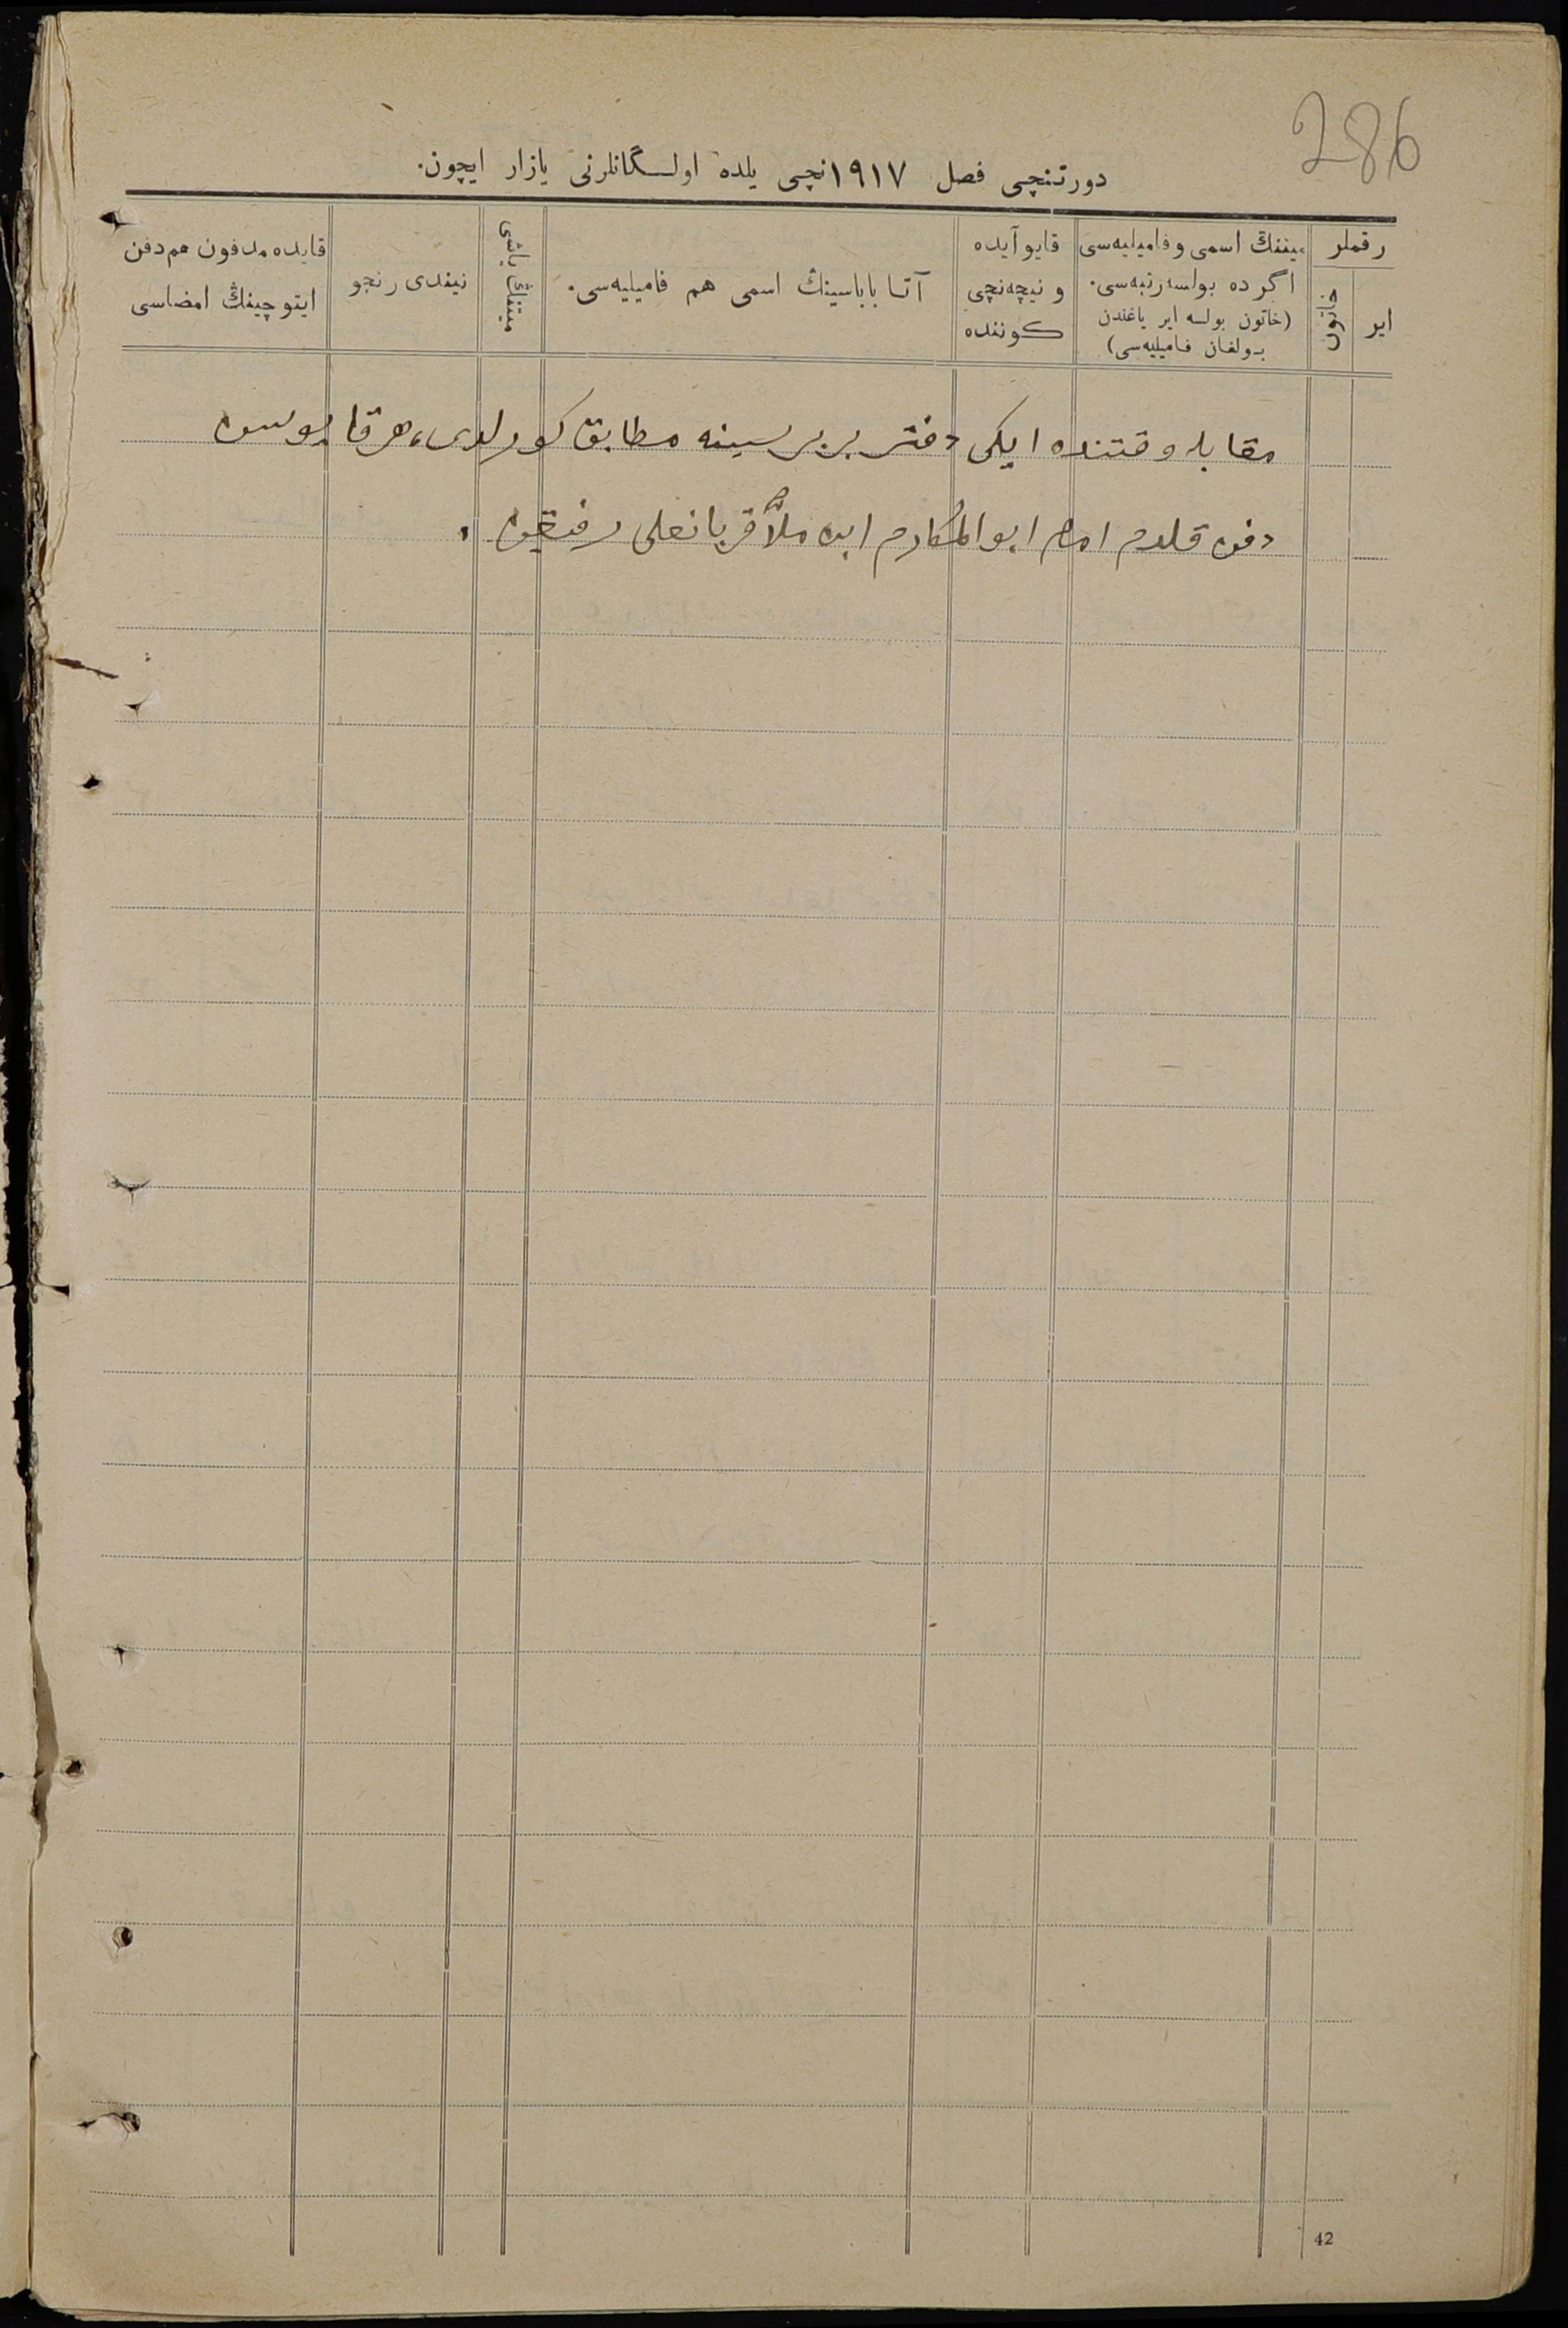 286
دورتنچی فصل ۱۹۱۷نچی یلده اولسگانلرنی یازار ایچون.
رقملر
ایر
خاتون
میتنڭ اسمی و فامیلیه‌سی
اگر ده بولسه رتبه‌سی.
(خاتون بولسه ایر یاغندن
بولغان فامیلیه‌سی)
قایو آیده
و نیچه‌نچی
کوننده
آتا باباسینڭ اسمی هم فامیلیه‌سی.
میتنڭ یاشی
نیندی رنجو
قایده مدفون هم دفن
ایتوچینڭ امضاسی
مقابله وقتنده ایکی دفتر بربرسینه مطابق کورلدی، هر قایوسن
دفن قلدم امام ابو المکارم ابن ملا قربانعلی رفیقین.
42